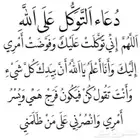 دُعَاء التَّوَكُّل عَلَى اللَّه
اللَّهُمَّ إِنِّي تَوَكَّلْتُ عَلَيْكَ وَفَوَّضْتُ أَمْرِي
إِلَيْكَ وَأَنَا أَعْلَمُ يَا اللَّهُ أَنَّ بِيَدِكَ كُلَّ شَيْءٍ
وَأَنْتَ تَقُولُ كُنْ فَيَكُونُ فَرِّجْ هَمِّي وَيَسِّرْ
أَمْرِي وَانْصُرْنِي عَلَى مَنْ ظَلَمَنِي